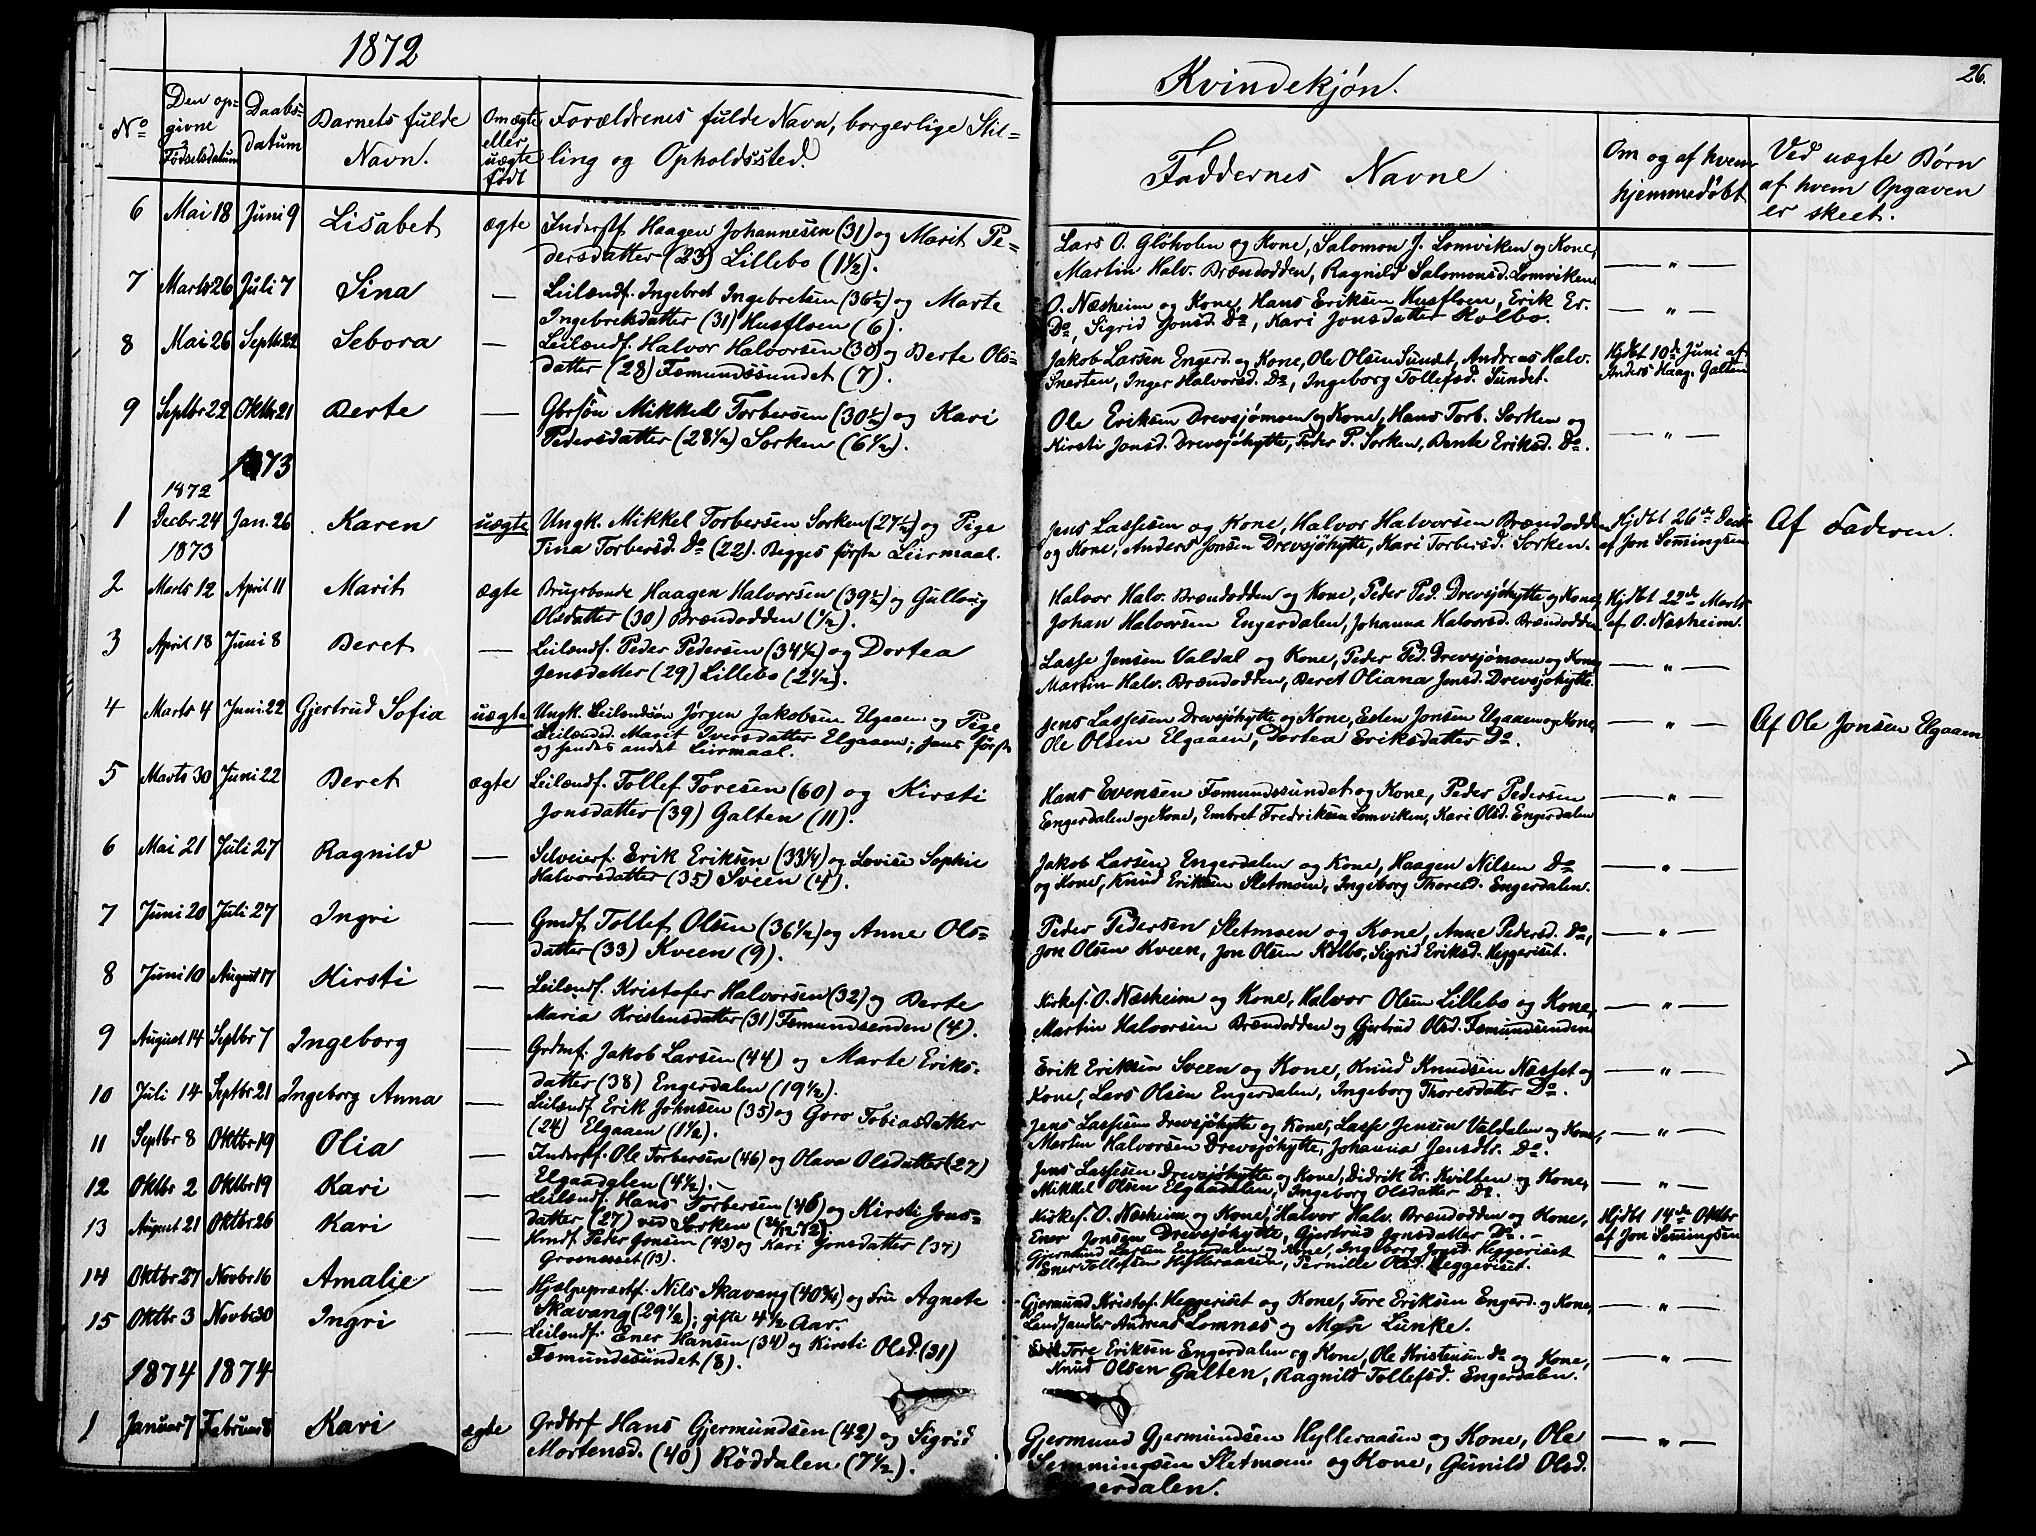 1872
Kvindekjøn.
26.
No
Den op-
givne
Fødselsdatum
Daabs-
datum
Barnets fulde
Navn.
Om ægte
eller
uægte
født
Forældrenes fulde Navn, borgerlige Stil-
ling og Opholdssted.
Faddernes Navne
Om og af hvem
hjemmedøbt
Ved uægte Børn
af hvem Opgaven
er skeet.
6 Mai 18 Juni 9 Lisabet ægte Inderstf. Haagen Johannesen (31) og Marit Pe-
dersdatter (23) Lillebo (1 1/2).
Lars O. Glöholen og Kone, Salomon J. Lomviken og Kone,
Martin Halv. Brændodden, Ragnild Salomonsd. Lomviken
— " —
7 Marts 26 Juli 7 Sina — Leilændf. Ingebret Ingebretsen (36 1/2) og Marte
Ingebretsdatter (31) Husfloen (6).
O. Næsheim og Kone, Hans Eriksen Husfloen, Erik Er.
Do, Sigrid Jonsd. Do, Kari Jonsdatter Kolbo.
— " —
8 Mai 26 Septbr 22 Sebora — Leilændf. Halvor Halvorsen (30) og Berte Ols-
datter (28) Fæmundssundet (7).
Jakob Larsen Engerd. og Kone, Ole Olsen Sundet, Andreas Halv.
Snerten, Inger Halvorsd. Do, Ingeborg Tollefsd. Sundet.
Hjdbt 10de Juni af
Anders Haag. Galten
9 Septbr 22 Oktbr 21 Berte — Gbrsön Mikkel Torbersen (30 1/2) og Kari
Pedersdatter (28 1/2) Sorken (6 1/2).
Ole Eriksen Drevsjömoen og Kone, Hans Torb. Sorken og
Kirsti Jonsd. Drevsjöhytte, Peder P. Sorken, Bente Eriksd. Do.
— " —
1873
1872
1 Decbr 24 Jan. 26 Karen uægte Ungk. Mikkel Torbersen Sorken (27 1/2) og Pige
Tina Torbersd. Do (22). Begges første Leirmaal.
Jens Lassesen og Kone, Halvor Halvorsen Brændodden
og Kone, Anders Jonsen Drevsjöhytte, Kari Torbersd. Sorken.
Hjdbt 26de Decbr
af Jon Semingsen
Af Faderen.
1873
2 Marts 12 April 11 Marit ægte Brugsbonde Haagen Halvorsen (39 1/2) og Gullaug
Olsdatter (30) Brændodden (1/2).
Halvor Halv. Brændodden og Kone, Peder Ped. Drevsjöhytte og Kone,
Johan Halvorsen Engerdalen, Johanna Halvorsd. Brændodden
Hjdbt 22de Marts
af O. Næsheim.
3 April 18 Juni 8 Beret — Leilændf. Peder Pedersen (34 1/2) og Dortea
Jensdatter (29) Lillebo (2 1/2).
Lasse Jensen Valdal og Kone, Peder Ped. Drevsjömoen og Kone
Martin Halv. Brændodden, Beret Oliana Jensd. Drevsjöhytte.
— " —
4 Marts 4 Juni 22 Gjertrud Sofia uægte Ungk. Leilændsön Jørgen Jakobsen Elgaaen og Pige
Leilændsd. Marit Iversdatter Elgaaen; hans første
og hendes andet Leirmaal.
Jens Lassesen Drevsjöhytte og Kone, Esten Jonsen Elgaaen og Kone,
Ole Olsen Elgaaen, Dortea Eriksdatter Do.
— " —
Af Ole Jonsen Elgaaen
5 Marts 30 Juni 22 Beret ægte Leilændf. Tollef Toresen (60) og Kirsti
Jonsdatter (39) Galten (11).
Hans Evensen Fæmundssundet og Kone, Peder Pedersen
Engerdalen og Kone, Embret Fredriksen Lomviken, Kari Olsd. Engerdalen
— " —
6 Mai 21 Juli 27 Ragnild — Selveierf. Erik Eriksen (33 1/4) og Lovise Sophie
Halvorsdatter (35) Sveen (4).
Jakob Larsen Engerdalen og Kone, Haagen Nilsen Do
og Kone, Knud Eriksen Sletmoen, Ingeborg Thoresd. Engerdalen.
— " —
7 Juni 20 Juli 27 Ingri — Gmdf. Tollef Olsen (36 1/2) og Anne Ols-
datter (33) Kveen (9).
Peder Pedersen Sletmoen og Kone, Anne Pedersd. Do,
Jon Olsen Kveen, Jon Olsen Kolbo, Sigrid Eriksd. Heggeriset.
— " —
8 Juni 10 August 17 Kirsti — Leilændf. Kristofer Halvorsen (32) og Berte
Maria Kristensdatter (31) Fæmundsenden (4).
Kirkes. O. Næsheim og Kone, Halvor Olsen Lillebo og Kone,
Martin Halvorsen Brændodden og Gjertrud Olsd. Fæmundsenden
— " —
9 August 14 Septbr 7 Ingeborg — Grdmf. Jakob Larsen (44) og Marte Eriks-
datter (38) Engerdalen (19 1/2).
Erik Eriksen Sveen og Kone, Knud Knudsen Næsset og
Kone, Lars Olsen Engerdalen, Ingeborg Thoresdatter Do.
— " —
10 Juli 14 Septbr 21 Ingeborg Anna — Leilændf. Erik Johnsen (35) og Goro Tobiasdatter
(24) Elgaaen (1 1/2).
Jens Lassesen Drevsjöhytte og Kone, Lasse Jensen Valdalen og Kone,
Martin Halvorsen Drevsjöhytte, Johanna Jensdtr. Do.
— " —
11 Septbr 8 Oktbr 19 Olia — Inderstf. Ole Torbersen (46) og Olava Olsdatter (27)
Elgaadalen (4 1/2).
Jens Lassesen Drevsjöhytte og Kone, Didrik Er. Kvilten og Kone,
Mikkel Olsen Elgaadalen, Ingeborg Olsdatter Do.
— " —
12 Oktbr 2 Oktbr 19 Kari — Leilændf. Hans Torbersen (46) og Kirsti Jons-
datter (27) ved Sorken (26/12 72)
Kirkes. O. Næsheim og Kone, Halvor Halv. Brændodden og Kone,
Ener Jonsen Drevsjöhytte, Gjertrud Jonsdatter Do.
Hjdbt 14de Oktbr
af Jon Semingsen
13 August 21 Oktbr 26 Kari — Hmdf. Peder Jonsen (43) og Kari Jonsdatter (37)
Grænesset (13).
Gjermund Larsen Engerdalen og Kone, Ingeborg Jonsd. Heggeriset
Ener Tollefsen Hylleraasen, Pernille Olsd. Heggeriset.
— " —
14 Oktbr 27 Novbr 16 Amalie — Hjælpepræstf. Nils Skavang (40 3/4) og Fru Agnete
Skavang (29 1/2); gifte 4 1/2 Aar.
Gjermund Kristof. Heggeriset og Kone, Tore Eriksen Engerd. og Kone,
Landhandler Andreas Lomnæs og Mari Lunke.
— " —
15 Oktbr 3 Novbr 30 Ingri — Leilændf. Ener Hansen (34) og Kirsti Olsd. (31)
Fæmundssundet (8).
Tore Eriksen Engerdalen og Kone, Ole Kristensen Do og Kone,
Knud Olsen Galten, Ragnild Tollefsd. Engerdalen.
— " —
1874 1874
1 Januar 7 Februar 8 Kari ægte Grdbrf Hans Gjermundsen (42) og Sigrid
Mortensd. (40) Röddalen (7 1/2).
Gjermund Gjermundsen Hylleraasen og Kone, Ole
Semmingsen Sletmoen og Kone, Gunild Olsd.
erdalen.
— " —